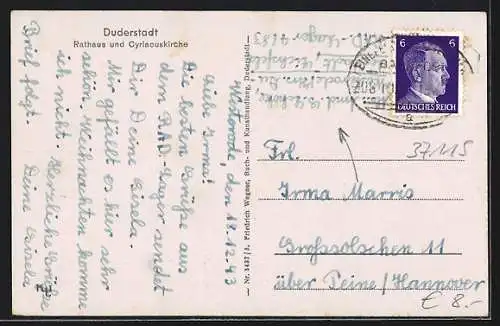 Duderstadt
Rathaus und Cyriacuskirche
Westerode, den 18.12.43
Liebe Irma!
Die besten Grüße aus
dem RAD-Lager sendet
Dir Deine Gisela.
Mir gefällt es hier sehr
schön. Weihnachten komme
ich nicht. Herzliche Grüße
Brief folgt. Deine Gisela
Nr. 5437/A. Friedrich Wegner, Buch- und Kunsthandlung, Duderstadt
RAD-Lager
6 6
DEUTSCHES REICH
a
37115
Frl.
Irma Marris
Großsolschen 11
über Peine/Hannover
€ 8.-